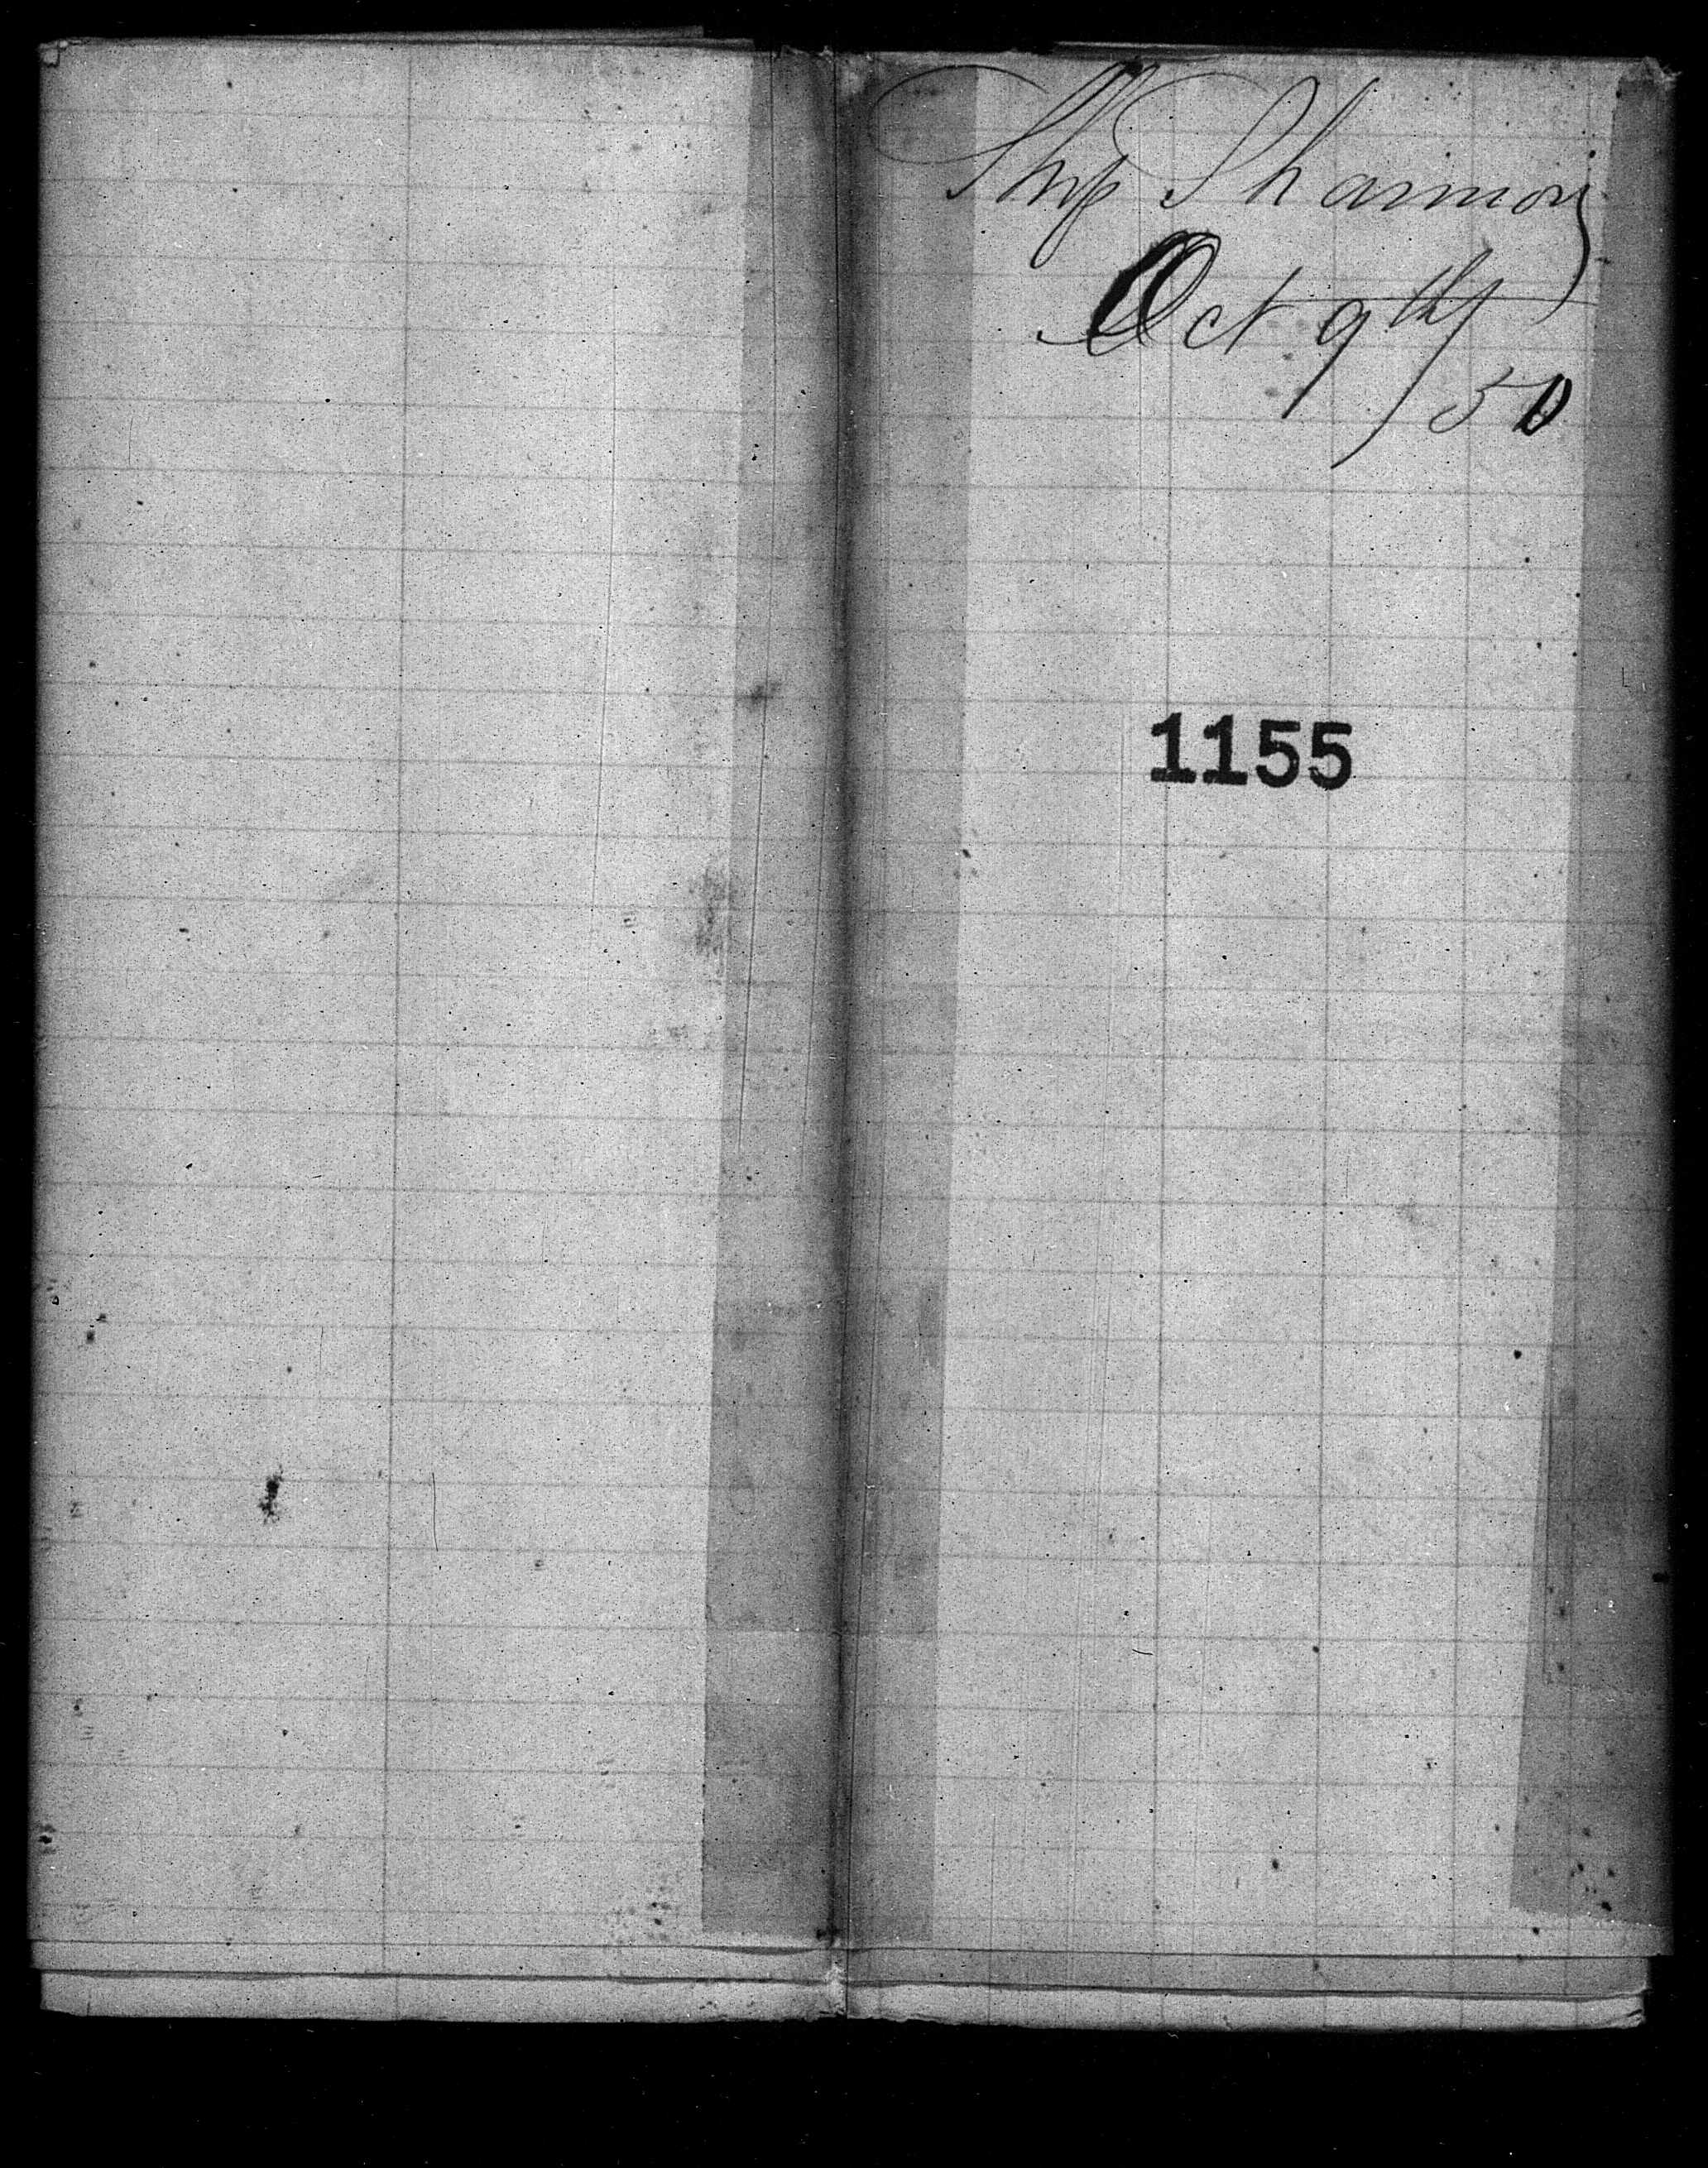 Ship Shannon
Oct 9th
50
1155